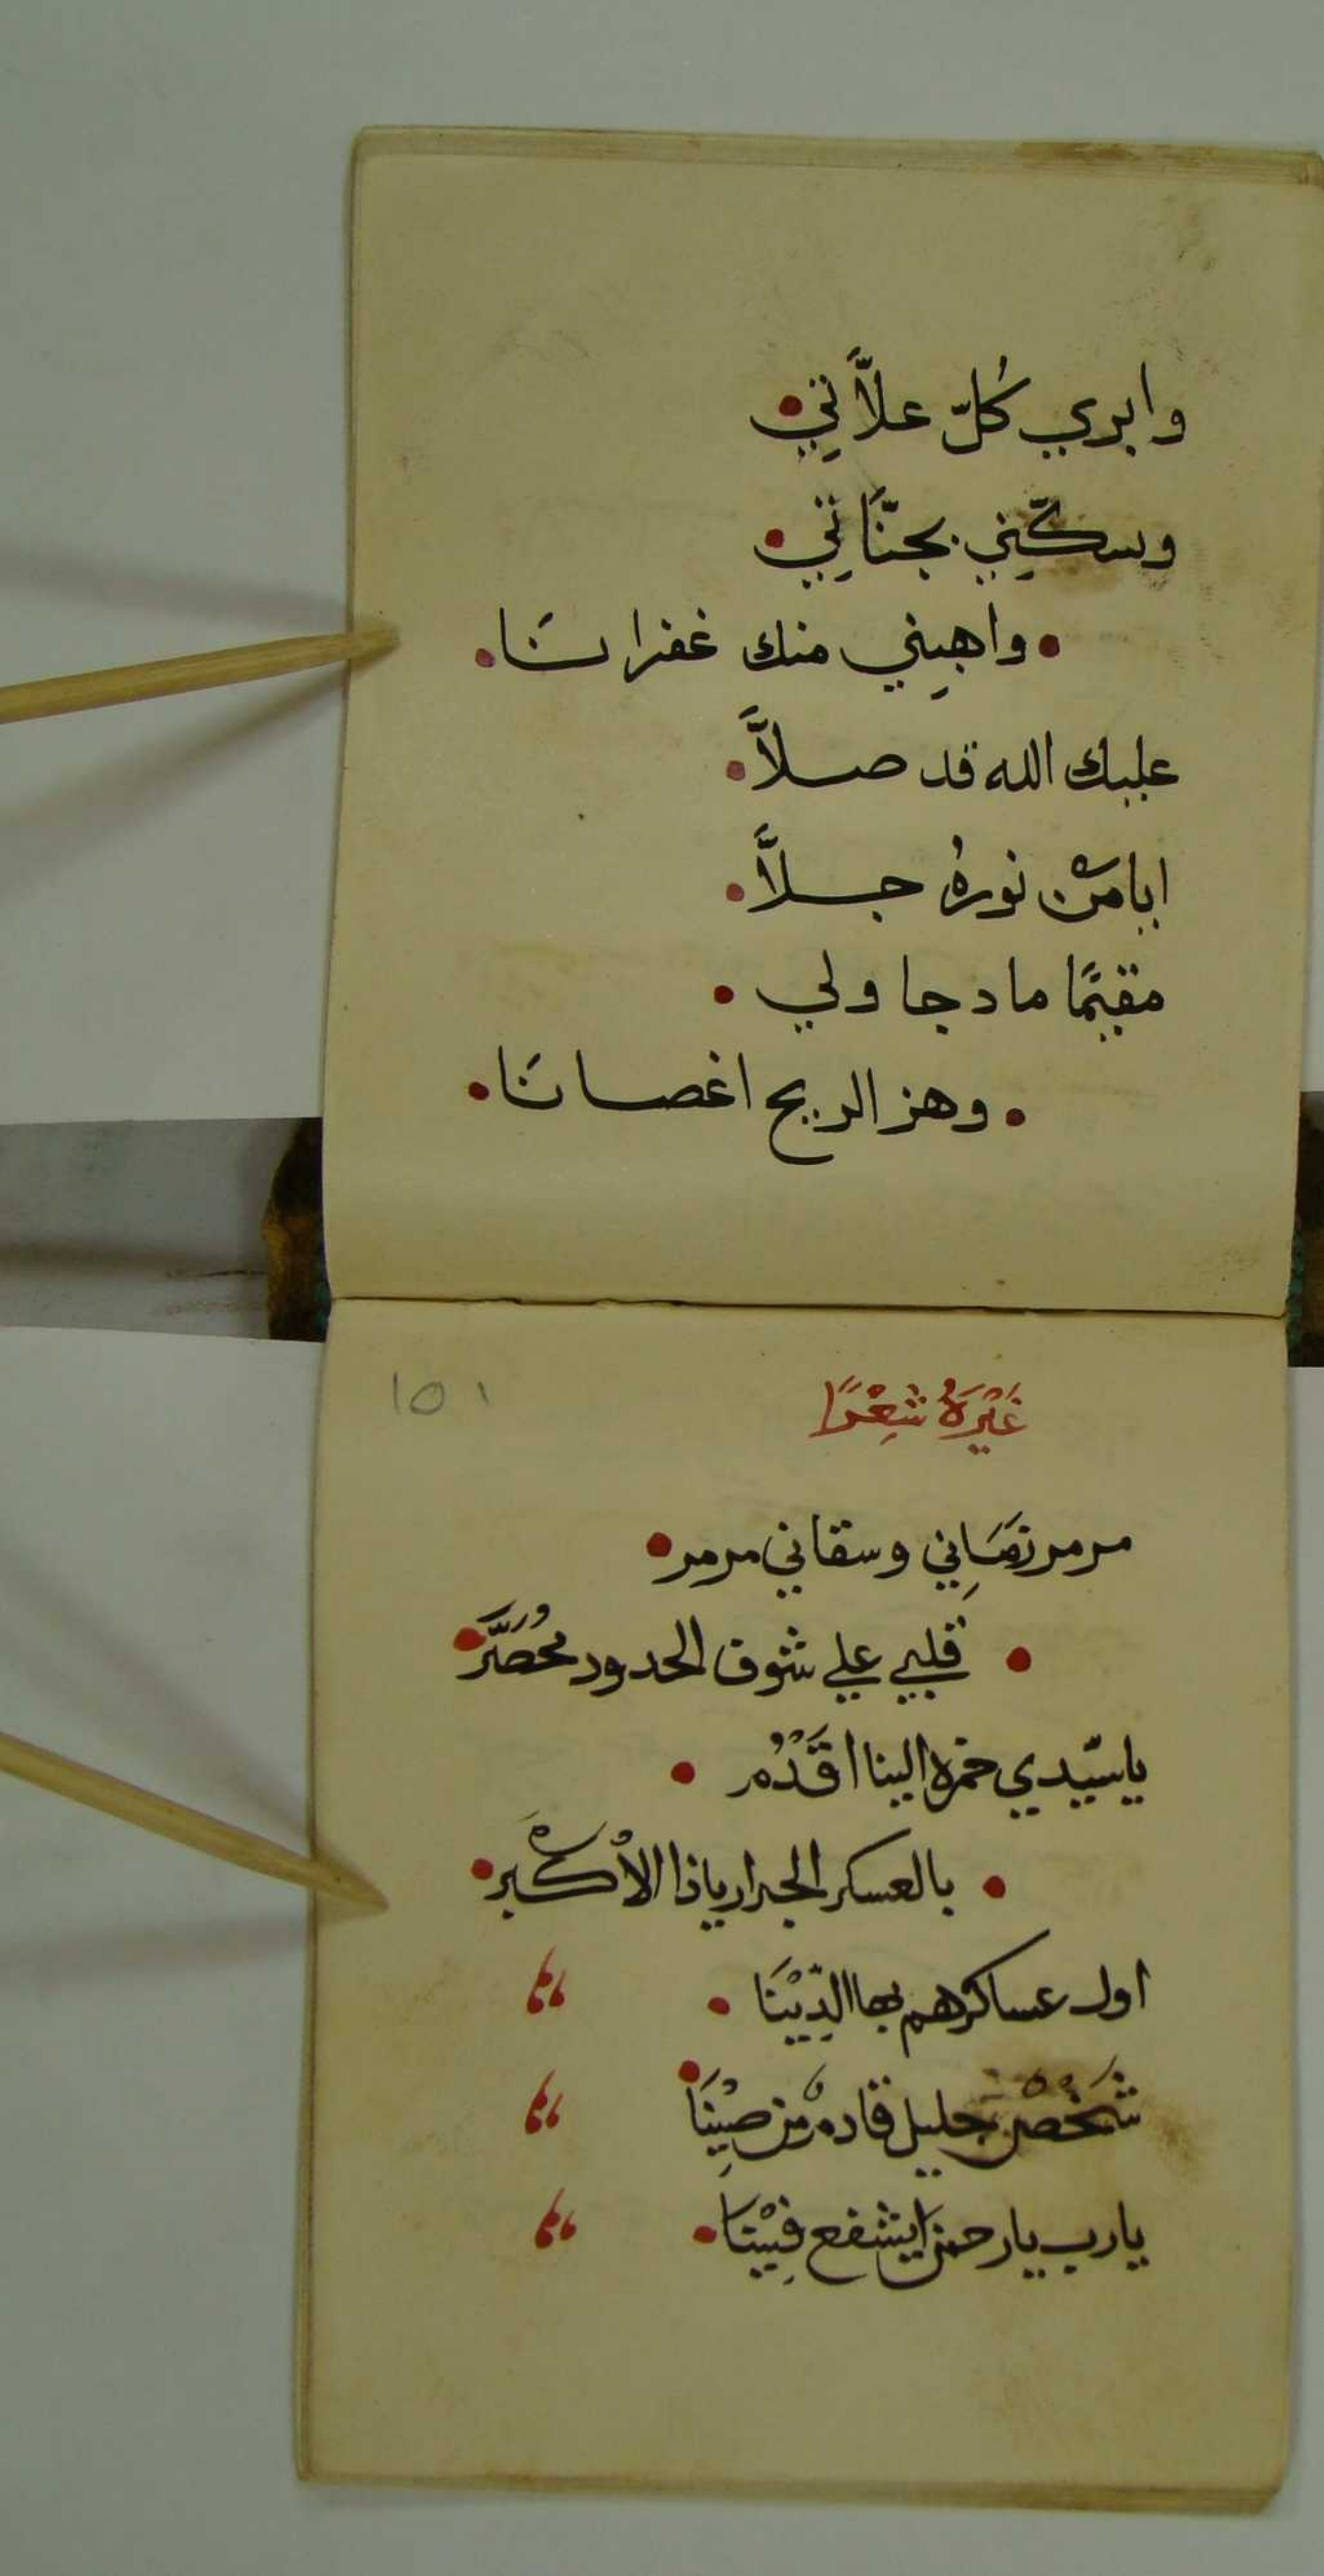 وابري كُلّ علاَّتِي
وسكّنِي بجنّاتِي
واهبِني منك غفرانَا
عليك الله قد صلاَّ
ايا من نورهُ جلاَّ
مقيمًا ما دجا ولي
وهز الريح اغصانَا
غَيْرَهُ شِعْرًا
١٥١
مرمر زمَانِي وسقاني مرمر
قلبي علي شوف الحدود مُحَصَّرَ
ياسيّدي حمزه الينا اقَدْم
بالعسكر الجرار ياذا الاكْبر
اول عساكرهم بها الدِّيْنَا
شَخْصٌ جليل قادم من صِيْنَا
يارب يارحمن ايشفع فِيْنَا